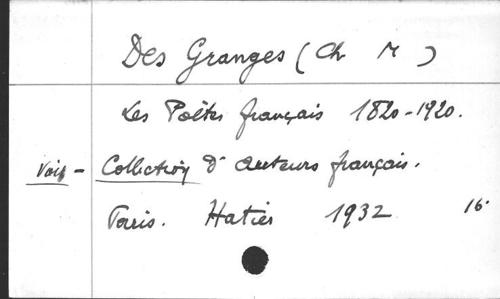 Des Granges (Ch M)
Les Poètes français 1820-1920.
Voir - Collection d'auteurs français.
Paris. Hatier 1932 16°